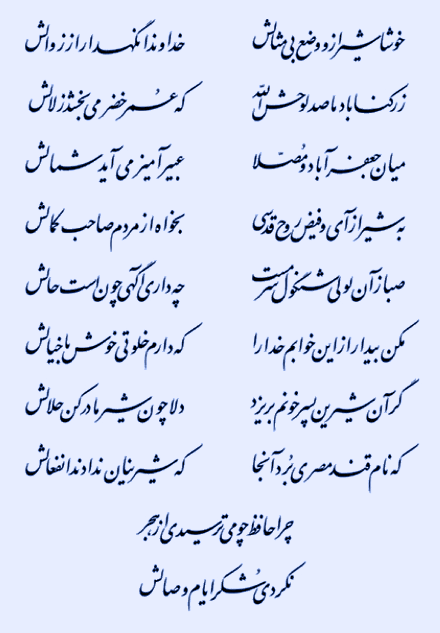 خوشا شیراز و وضع بی مثالش خداوندا نگهدار از زوالش
ز رکناباد ما صد لوحش الله که عمر خضر می بخشد زلالش
میان جعفرآباد و مصلّا عبیرآمیز می آید شمالش
به شیراز آی و فیض روح قدسی بخواه از مردم صاحب کمالش
صبا ز آن لولی شنگول سرمست چه داری آگهی چون است حالش
مکن بیدار از این خوابم خدا را که دارم خلوتی خوش با خیالش
گر آن شیرین پسر خونم بریزد دلا چون شیر مادر کن حلالش
که نام قند مصری بُرد آنجا که شیرینان ندادند انفعالش
چرا حافظ چو می ترسیدی از هجر
نکردی شُکر ایام وصالش